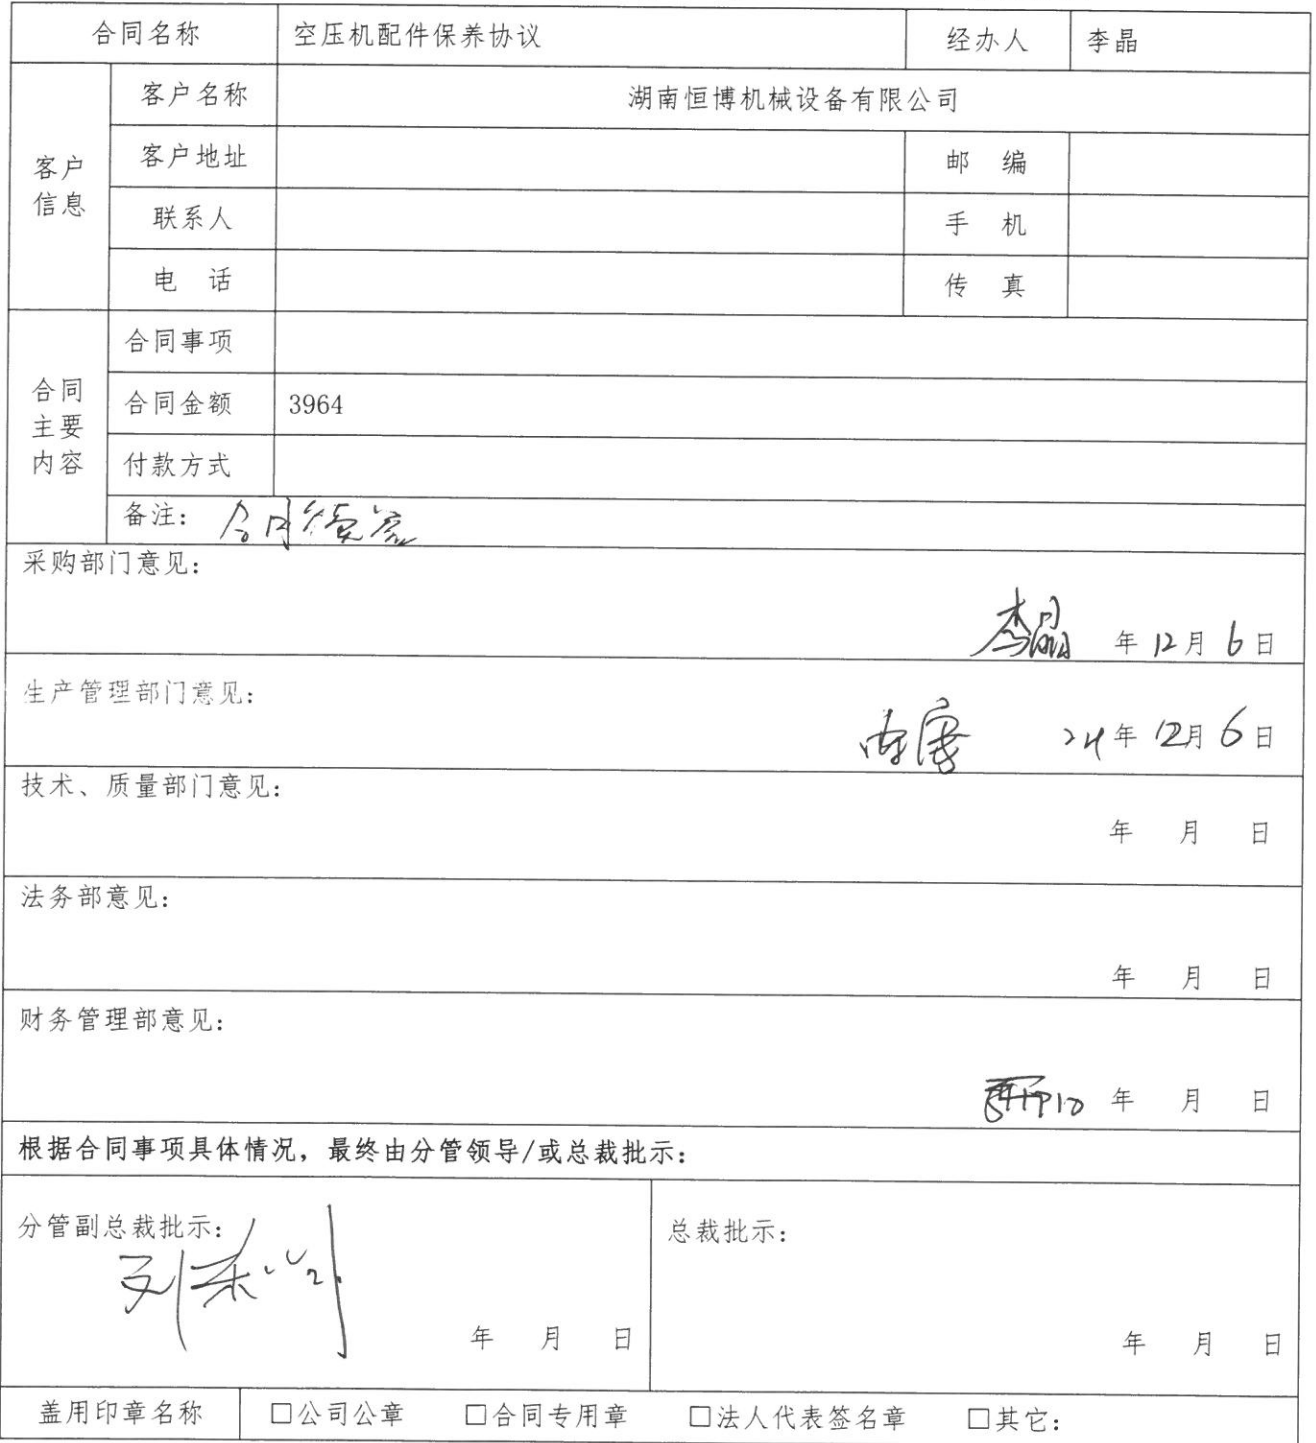 合同名称 空压机配件保养协议 经办人 李晶
客户信息
客户名称 湖南恒博机械设备有限公司
客户地址 邮 编
联系人 手 机
电 话 传 真
合同主要内容
合同事项
合同金额 3964
付款方式
备注: 合同续签
采购部门意见:
李晶 年12月6日
生产管理部门意见:
24年12月6日
技术、质量部门意见:
年 月 日
法务部意见:
年 月 日
财务管理部意见:
年 月 日
根据合同事项具体情况，最终由分管领导/或总裁批示:
分管副总裁批示:
年 月 日
总裁批示:
年 月 日
盖用印章名称 □公司公章 □合同专用章 □法人代表签名章 □其它: